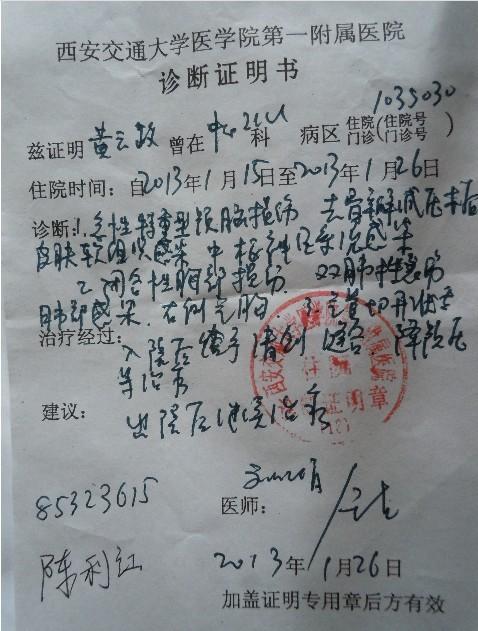 西安交通大学医学院第一附属医院
诊断证明书
1035030
兹证明 黄云敏 曾在 中心ICU 科 病区 住院 门诊 (住院号 门诊号)
住院时间:自2013年1月15日至2013年1月26日
诊断:1.急性特重型颅脑损伤 去骨瓣减压术后
皮肤软组织感染 中枢神经系统感染
2.闭合性胸部损伤 双肺挫裂伤
肺部感染 右侧气胸 气管切开术后
治疗经过:入院后给予清创缝合、降颅压
等治疗
建议:出院后继续治疗
医师:
85323615
陈利红
2013年1月26日
加盖证明专用章后方有效